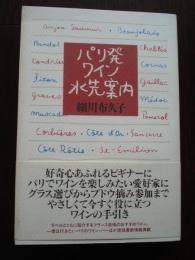 Anjou Saumur Beaujolais
Bandol
Chablis
Condrieu
パリ発
Cornas
Fixin
ワイン
Gaillac
水先案内
Médoc
Graves
細川布久子
Pomerol
Corbières Côte d'Or Sancerre
Côte Rôtie St-Emilion
好奇心あふれるビギナーに
パリでワインを楽しみたい愛好家に
グラス選びからブドウ摘み参加まで
やさしくて今すぐ役に立つ
ワインの手引き